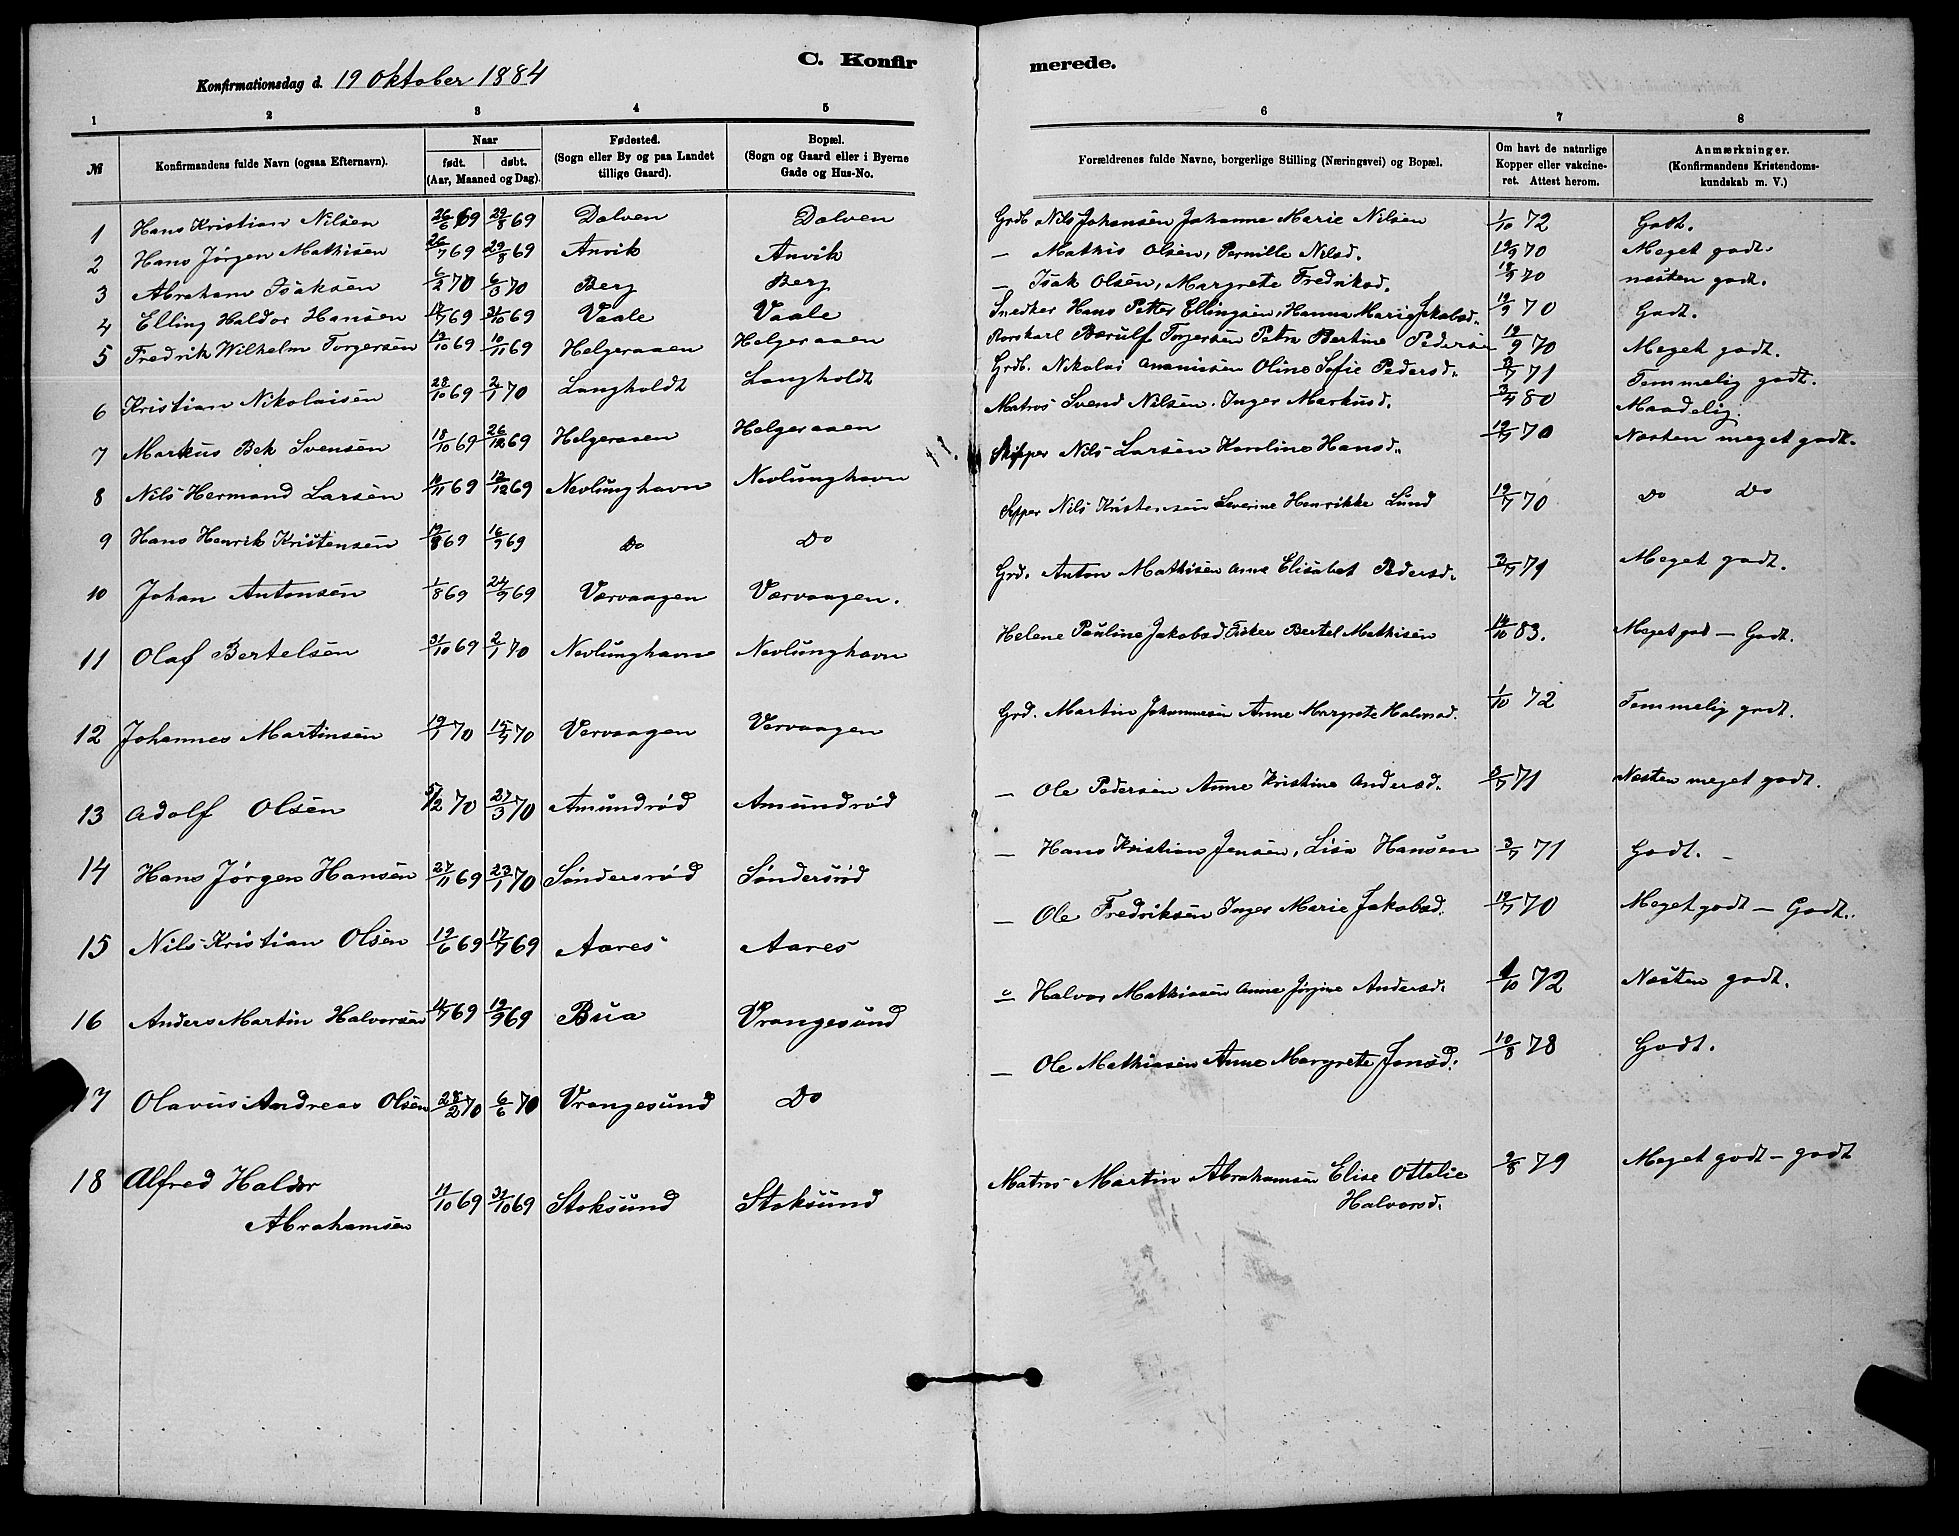 C. Konfirmerede.
Konfirmationsdag d. 19 Oktober 1884
1 2 3 4 5 6 7 8
№ | Konfirmandens fulde Navn (ogsaa Efternavn). | Naar født. døbt. (Aar, Maaned og Dag). | Fødested. (Sogn eller By og paa Landet tillige Gaard). | Bopæl. (Sogn og Gaard eller i Byerne Gade og Hus-No. | Forældrenes fulde Navne, borgerlige Stilling (Næringsvei) og Bopæl. | Om havt de naturlige Kopper eller vakcineret. Attest herom. | Anmærkninger. (Konfirmandens Kristendomskundskab m. V.)
1 Hans Kristian Nilsen 26/6 69 29/8 69 Dalven Dalven Grdb. Nils Johansen Johanne Marie Nilsen 1/10 72 Godt.
2 Hans Jørgen Mathisen 26/7 69 29/8 69 Anvik Anvik — Mathis Olsen, Pernille Nilsd. 19/9 70 Meget godt.
3 Abraham Isaksen 6/2 70 6/3 70 Berg Berg — Isak Olsen, Margrete Fredriksd. 19/9 70 næsten godt.
4 Elling Haldor Hansen 17/7 69 31/10 69 Vaale Vaale Snedker Hans Petter Ellingsen, Hanna Marie Jakobsd. 19/9 70 Godt.
5 Fredrik Wilhelm Torgersen 12/10 69 10/11 69 Helgeraaen Helgeraaen Torgersen Petra Bertine Pedersen 19/9 70 Meget godt.
6 Kristian Nikolaisen 28/10 69 2/1 70 Langholdt Langholdt Grdb. Nikolai Ananiasen Oline Sofie Pedersd. 3/7 71 Temmelig godt.
7 Markus Bek Svensen 18/10 69 26/12 69 Helgeraaen Helgeraaen Matros Svend Nilsen. Inger Markusd. 3/4 80 Maadelig.
8 Nils Hermand Larsen 10/11 69 12/12 69 Nevlunghavn Nevlunghavn Skipper Nils Larsen Karoline Hansd. 19/7 70 Næsten meget godt.
9 Hans Henrik Kristensen 19/8 69 16/9 69 Do Do Skpper Nils Kristensen Severine Henrikke Lund 19/7 70 Do Do
10 Johan Antonsen 1/8 69 24/9 69 Værvaagen Værvaagen. Grd. Anton Mathisen Anne Elisabet Pedersd. 3/7 71 Meget godt.
11 Olaf Bertelsen 31/10 69 2/1 70 Nevlunghavn Nevlunghavn Helene Pauline Jakobsd. Fisker Bertel Mathisen 14/10 83. Meget god — Godt.
12 Johannes Martinsen 19/1 70 15/4 70 Vervaagen Vervaagen Grd. Martin Johannesen Anne Margrete Halvorsd. 1/10 72 Temmelig godt.
13 Adolf Olsen 5/2 70 27/3 70 Amundrød Amundrød — Ole Pedersen Anne Kristine Andersd. 3/7 71 Næsten meget godt.
14 Hans Jørgen Hansen 27/11 69 23/1 70 Søndersrød Søndersrød — Hans Kristian Jensen, Lisa Hansen 3/7 71 Godt. —
15 Nils Kristian Olsen 19/6 69 17/7 69 Aares Aares — Ole Fredriksen Inger Marie Jakobsd. 19/7 70 Meget godt — Godt.
16 Anders Martin Halvorsen 14/7 69 19/9 69 Bua Vrangesund — Halvor Mathiasen Anne Jørgine Andersd. 1/10 72 Næsten godt.
17 Olavus Andreas Olsen 28/2 70 6/6 70 Vrangesund Do — Ole Mathiasen Anne Margrete Jonsd. 10/8 78 Godt.
18 Alfred Haldor Abrahamsen 11/10 69 31/10 69 Stoksund Stoksund Matros Martin Abrahamsen Elise Ottelie Halvorsd. 9/8 79 Meget godt — godt